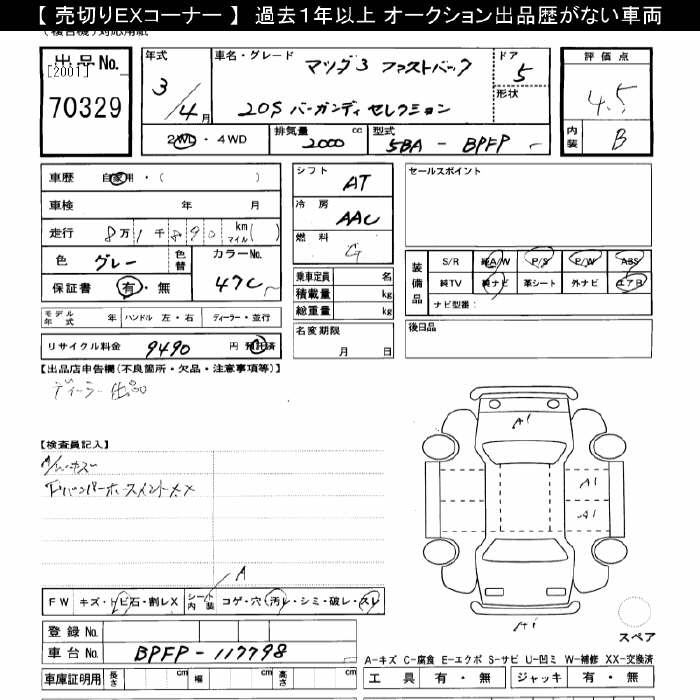 【 売切りEXコーナー 】 過去1年以上 オークション出品歴がない車両
出品No. [2001] 70329
年式 3/4月
車名・グレード マツダ3 ファストバック
20S バーガンディ セレクション
ドア 5
形状
2WD・4WD
排気量 2000 cc
型式 5BA - BPFP
評価点 4.5
内装 B
車歴 自家用・( )
車検 年 月
走行 8万1千890 km マイル( )
色 グレー 色替 カラーNo. 47C
保証書 有・無
モデル年式 年 ハンドル 左・右 ディーラー・並行
リサイクル料金 9490 円 預託済
シフト AT
冷房 AAC
燃料 G
乗車定員 名
積載量 kg
総重量 kg
名変期限 月 日
セールスポイント
装備品
S/R 純A/W P/S P/W ABS
純TV 純ナビ 革シート 外ナビ エアB
ナビ型番:
後日品
【出品店申告欄(不良箇所・欠品・注意事項等)】
ディーラー仕
【検査員記入】
A1
A1
A1
A1
A
FW キズ・トビ石・割レX シート内装 コゲ・穴・汚レ・シミ・破レ・スレ
登録No.
車台No. BPFP-117798
車庫証明用 長さ cm 幅 cm 高さ cm
スペア
A-キズ C-腐食 E-エクボ S-サビ U-凹ミ W-補修 XX-交換済
工具 有・無 ジャッキ 有・無